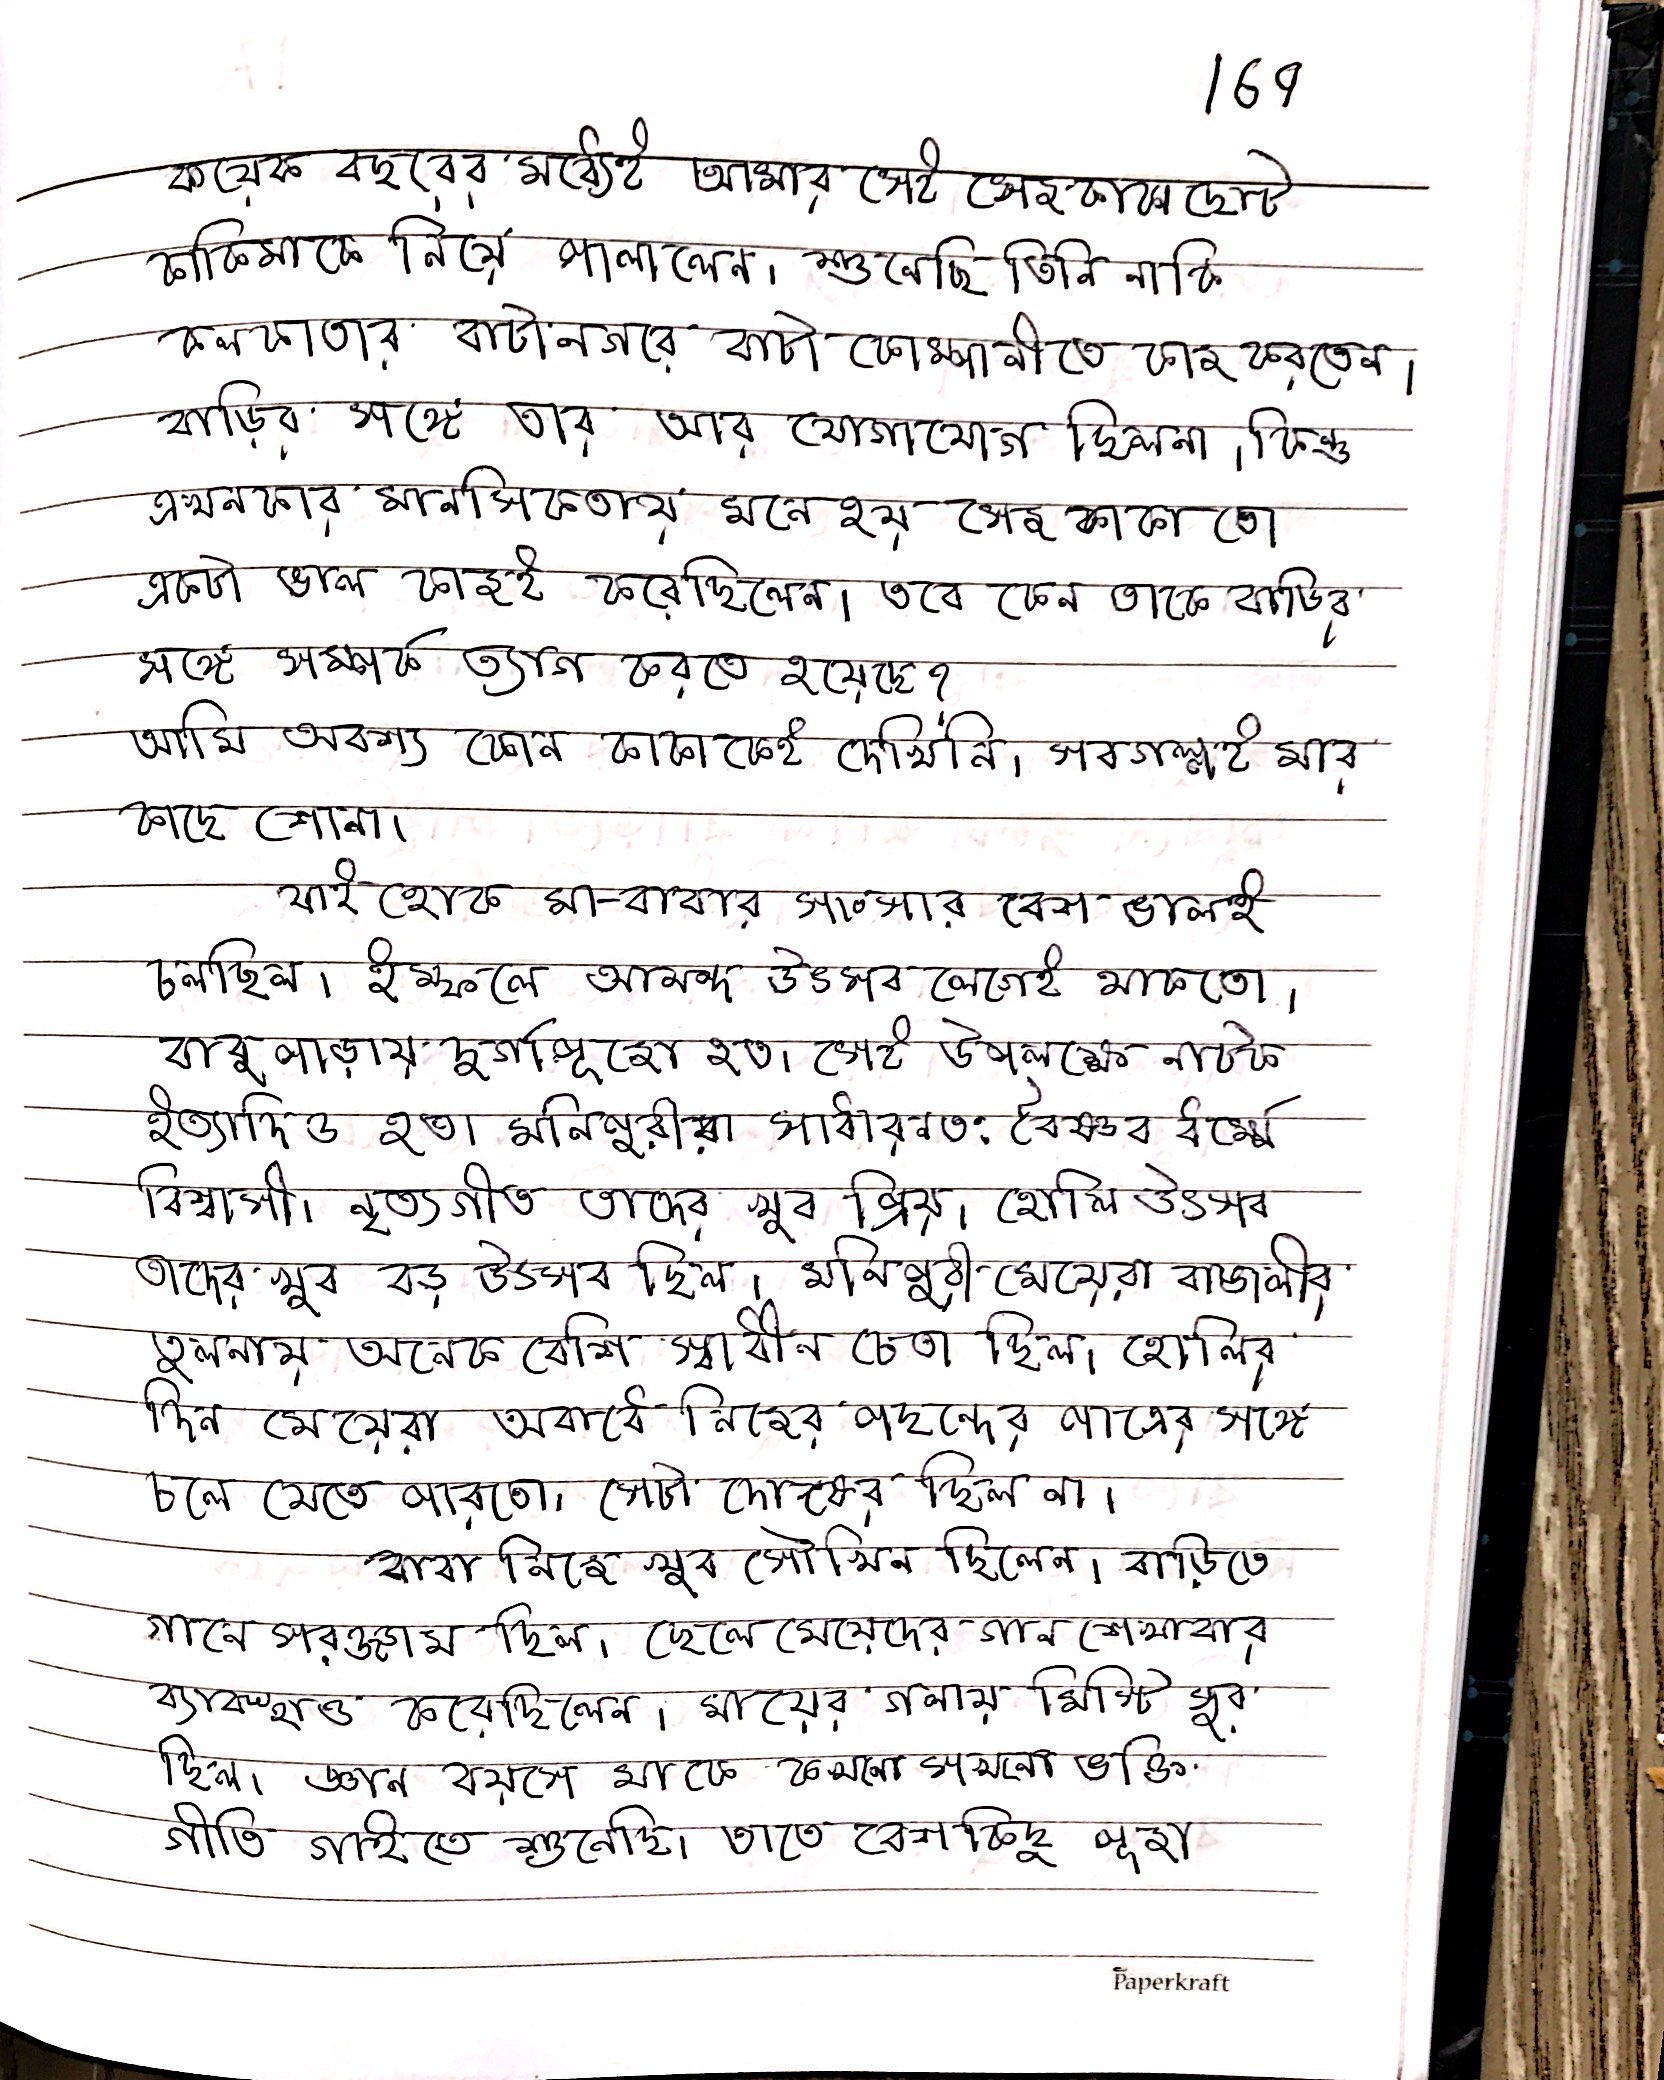 169
কয়েক বছরের মধ্যেই আমার সেই সেজকাকা ছোট
কাকিমাকে নিয়ে পালালেন। শুনেছি তিনি নাকি
কলকাতার বাটানগরে বাটা কোম্পানীতে কাজ করতেন।
বাড়ির সঙ্গে তার আর যোগাযোগ ছিলনা। কিন্তু
এখনকার মানসিকতায় মনে হয় সেজ কাকা তো
একটা ভাল কাজই করেছিলেন। তবে কেন তাকে বাড়ির
সঙ্গে সম্পর্ক ত্যাগ করতে হয়েছে?
আমি অবশ্য কোন কাকাকেই দেখিনি। সবগল্পই মার
কাছে শোনা।
যাই হোক মা-বাবার সংসার বেশ ভালই
চলছিল। ইম্ফলে আনন্দ উৎসব লেগেই থাকতো।
বাবু পাড়ায় দুর্গাপূজো হত। সেই উপলক্ষে নাটক
ইত্যাদিও হত। মনিপুরীরা সাধারনত: বৈষ্ণব ধর্ম্মে
বিশ্বাসী। নৃত্যগীত তাদের খুব প্রিয়। হোলি উৎসব
তাদের খুব বড় উৎসব ছিল। মনিপুরী মেয়েরা বাঙালীর
তুলনায় অনেক বেশি স্বাধীন চেতা ছিল। হোলির
দিন মেয়েরা অবাধে নিজের পছন্দের পাত্রের সঙ্গে
চলে যেতে পারতো। সেটা দোষের ছিল না।
বাবা নিজে খুব সৌখিন ছিলেন। বাড়িতে
গানে সরঞ্জাম ছিল। ছেলে মেয়েদের গান শেখাবার
ব্যাবস্থাও করেছিলেন। মায়ের গলায় মিস্টি সুর
ছিল। জ্ঞান বয়সে মাকে কখনো সখনো ভক্তি
গীতি গাইতে শুনেছি। তাতে বেশ কিছু পূজা
Paperkraft